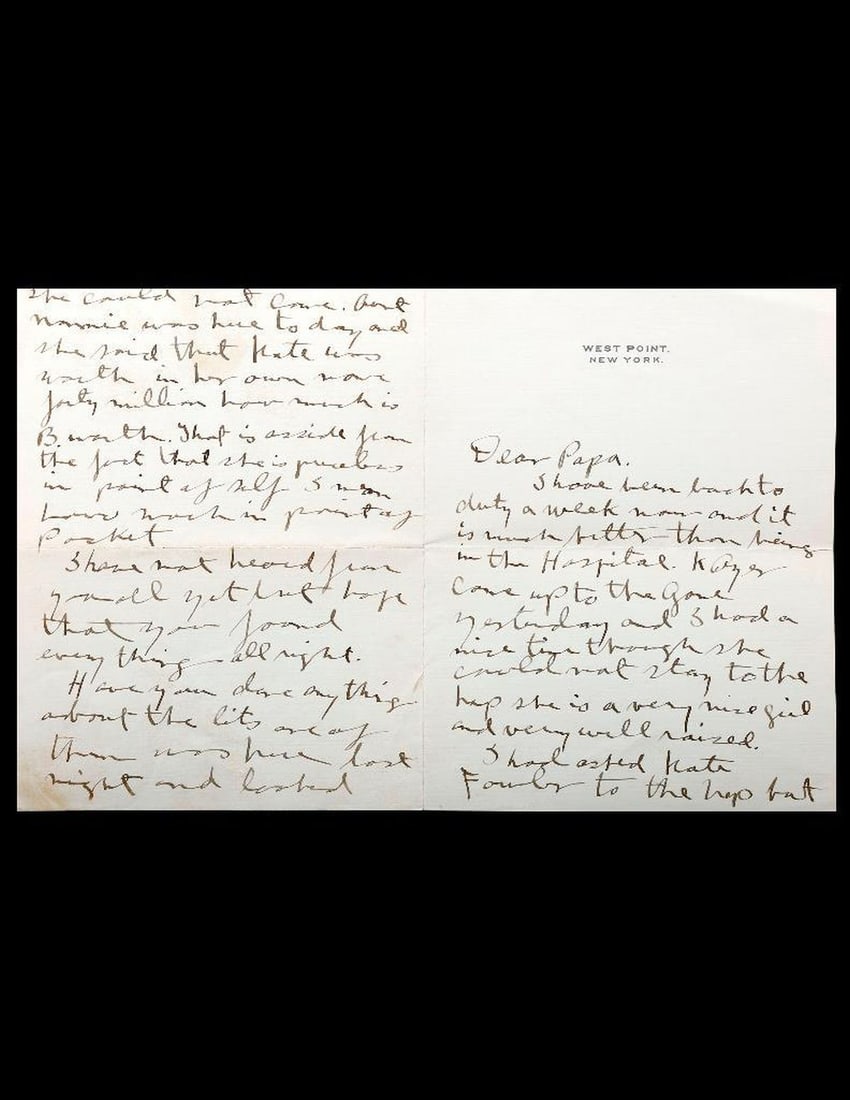 WEST POINT.
NEW YORK.
Dear Papa.
I have been back to
duty a week now and it
is much better than being
in the Hospital. K Ayer
came up to the game
yesterday and I had a
nice time though she
could not stay to the
hop she is a very nice girl
and very well raised.
I had asked Kate
Fowler to the hop but
she could not come. Aunt
Nannie was here to day and
she said that Kate was
worth in her own name
forty million how much is
B. worth. That is asside from
the fact that she is priceless
in point of self I mean
how much in point of
Pocket
I have not heard from
you all yet but hope
that you found
everything all right.
Have you done anything
about the lits one of
them was here last
night and looked